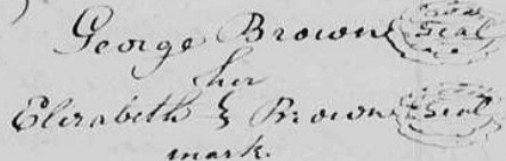 George Brown Seal
her
Elizabeth & Brown Seal
mark.